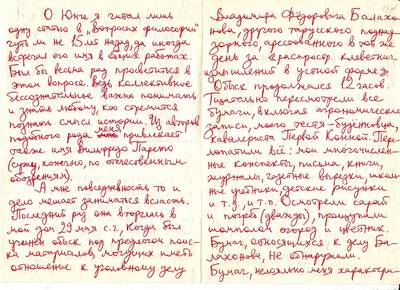 О Юнге я читал лишь
одну статью в „Вопросах философии"
чуть ли не 15 лет назад, да иногда
встречал его имя в других работах.
Был бы весьма рад просветиться в
этом вопросе, ведь коллективное
бессознательное важно понимать
и знать любому, кто стремится
познать смысл истории. Из авторов
подобного рода меня привлекает
также имя Вильфредо Парето
(сужу, конечно, по отечественным
обозрениям).
А мне повседневность то и
дело мешает заниматься всласть.
Последний раз она вторглась в
мой дом 29 мая с.г., когда был
учинен обыск под предлогом поис-
ка материалов, могущих иметь
отношение к уголовному делу
Владимира Фёдоровича Балахо-
нова, другого тарусского поднад-
зорного, арестованного в тот же
день за «распростр. клеветнич.
измышлений в устной форме»
Обыск продолжался 12 часов.
Тщательно пересмотрели все
бумаги, включая агрономические
записи моего тестя-будённовца,
кавалериста Первой Конной. Пере-
лопатили всё: мои многочислен-
ные конспекты, письма, книги,
журналы, газетные вырезки, школь-
ные учебники, детские рисунки
и т.д., и т.п. Осмотрели сарай
и погреб (дважды), прощупали
шомполом огород и цветник.
Бумаг, относящихся к делу Ба-
лахонова, не обнаружили.
Бумаг, нелояльно меня характери-